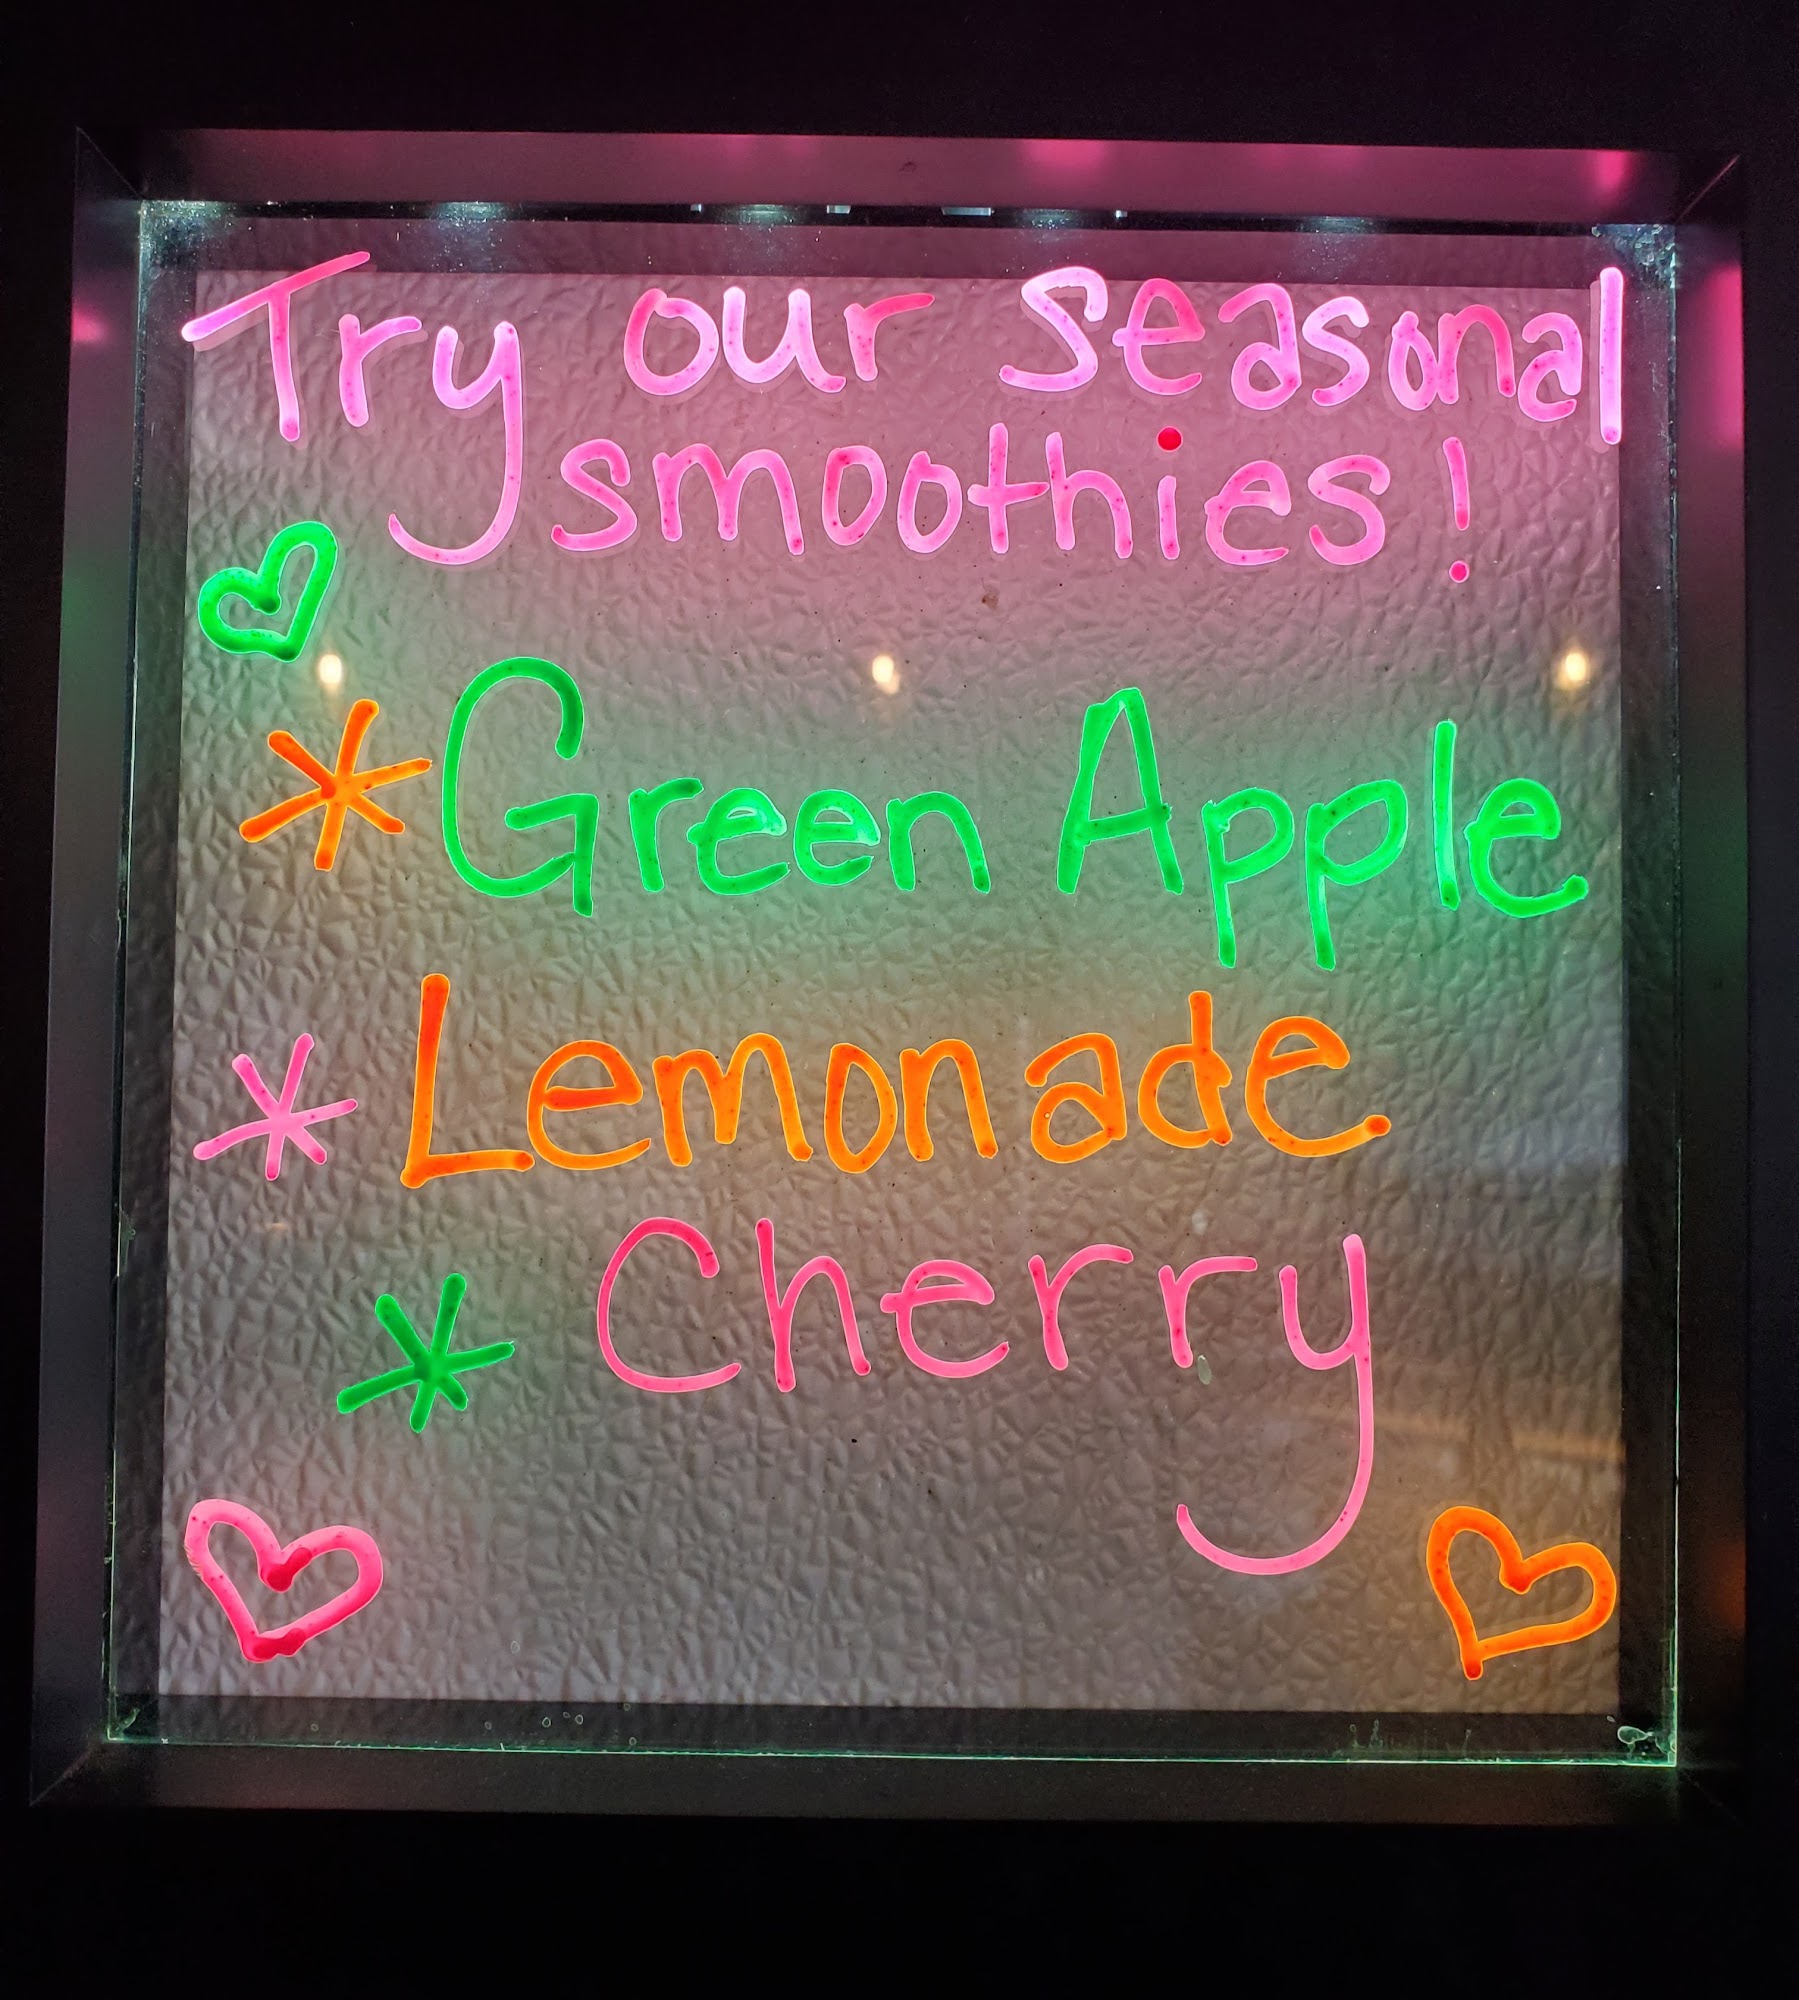 Try our seasonal
smoothies!
* Green Apple
* Lemonade
* Cherry